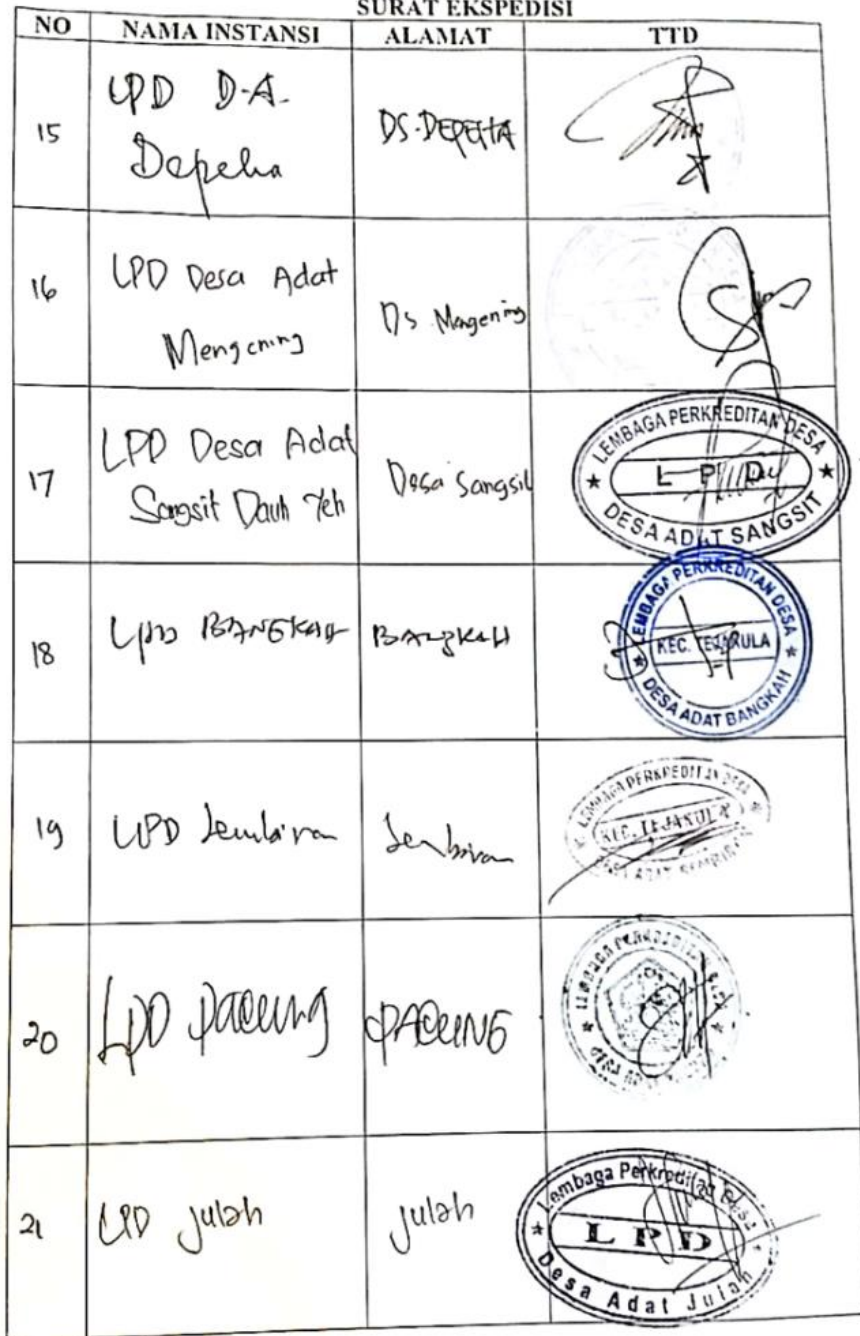 SURAT EKSPEDISI
NO NAMA INSTANSI ALAMAT TTD
15 LPD D.A. Depeha DS. DEPEHA
16 LPD Desa Adat Mengening Ds Mengening
17 LPD Desa Adat Sangsit Dauh Yeh Desa Sangsit
LEMBAGA PERKREDITAN DESA
L P D
DESA ADAT SANGSIT
18 LPD BANGKAH BANGKAH
LEMBAGA PERKREDITAN DESA
KEC. TEJAKULA
DESA ADAT BANGKAH
19 LPD Sembiran Sembiran
LEMBAGA PERKREDITAN DESA
KEC. TEJAKULA
DESA ADAT SEMBIRAN
20 LPD pacung PACUNG
LEMBAGA PERKREDITAN DESA
21 LPD Julah Julah
Lembaga Perkreditan Desa
L P D
Desa Adat Julah